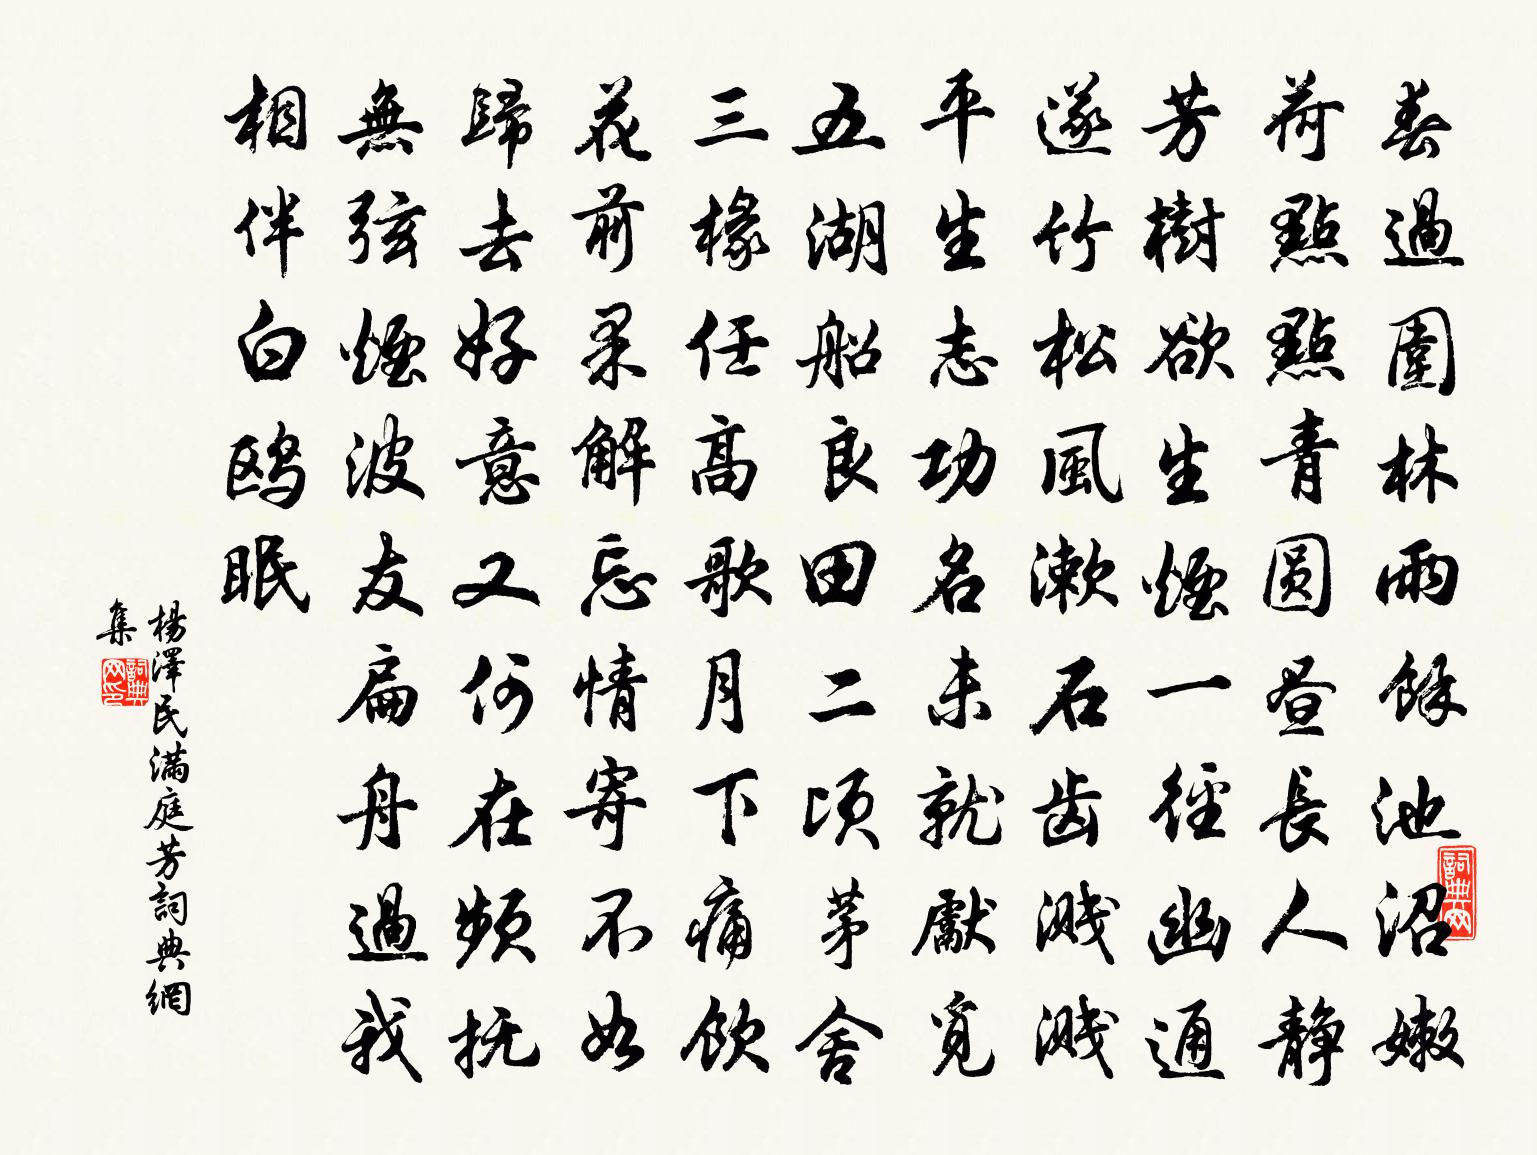 春過園林雨餘池沼嫩
荷點點青圆晝長人静
芳樹欲生煙一徑幽通
邃竹松風漱石齿溅溅
平生志功名未就獻覓
五湖船良田二頃茅舍
三椽任高歌月下痛飲
花前果解忘情寄不如
歸去好意又何在頻抚
無弦煙波友扁舟過我
相伴白鸥眠
楊澤民滿庭芳詞典網
集
詞典网
詞典网印